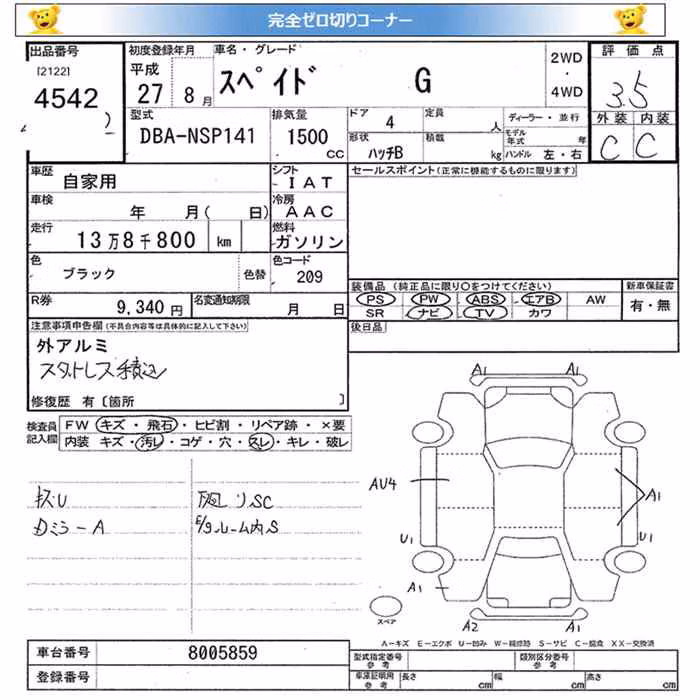 完全ゼロ切りコーナー
出品番号
[2122]
4542
初度登録年月
平成
27 8月
車名・グレード
スペイド G
2WD
・
4WD
評価点
3.5
外装 内装
C C
型式
DBA-NSP141
排気量
1500
CC
ドア
4
定員
人
形状
ハッチB
積載
kg
ディーラー・並行
モデル年式 年
ハンドル 左・右
車歴
自家用
シフト
IAT
車検
年 月( 日)
冷房
AAC
走行
13万8千800 km
燃料
ガソリン
色
ブラック
色替
色コード
209
R券
9,340 円
名変通知期限
月 日
セールスポイント(正常に機能するものに限ります)
装備品 (純正品に限り○をつけてください)
PS PW ABS エアB AW
SR ナビ TV カワ
新車保証書
有・無
後日品
注意事項申告欄 (不具合内容等は具体的に記入して下さい)
外アルミ
スタットレス積込
修復歴 有〔箇所 〕
検査員
記入欄
FW キズ・飛石・ヒビ割・リペア跡・×要
内装 キズ・汚レ・コゲ・穴・スレ・キレ・破レ
Dミラ-A
A1 A1
AU4
A1
U1 U1
A1
A2 A1
スペア
A-キズ E-エクボ U-凹み W-補修跡 S-サビ C-腐食 XX-交換済
車台番号
8005859
登録番号
型式指定番号
参考
類別区分番号
参考
車庫証明用
参考
長さ cm
幅 cm
高さ cm